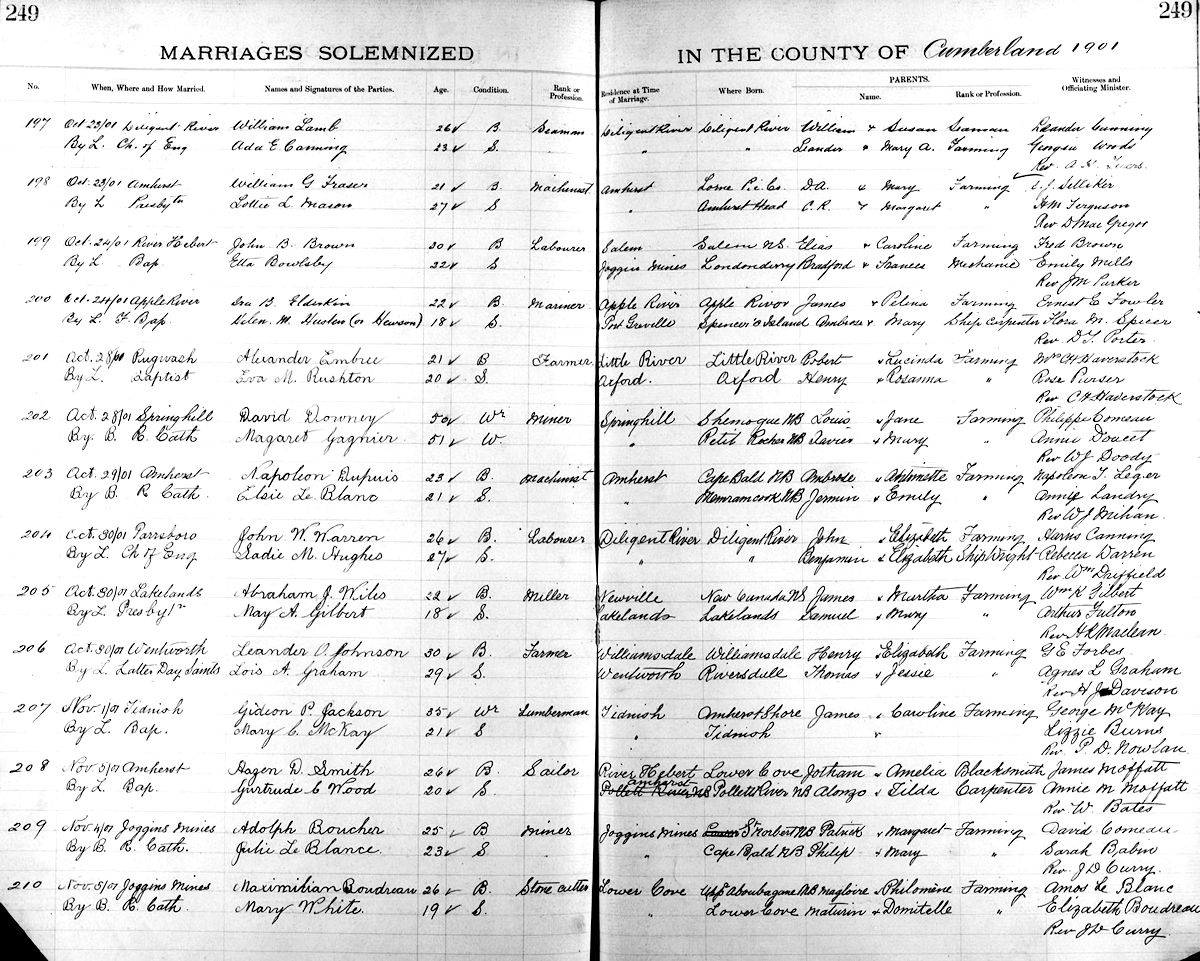 249
249
MARRIAGES SOLEMNIZED
IN THE COUNTY OF Cumberland 1901
No. When, Where and How Married. Names and Signatures of the Parties. Age. Condition. Rank or Profession. Residence at Time of Marriage. Where Born. PARENTS. Name. Rank or Profession. Witnesses and Officiating Minister.
197 Oct 23/01 Diligent River William Lamb 26 B. Seaman Diligent River Diligent River William & Susan Seaman Leander Canning
By L. Ch. of Eng Ada E Canning 23 S. " " Leander & Mary A. Farming Georgia Woods
Rev. A.
198 Oct. 23/01 Amherst William G Fraser 21 B. Machinist Amherst Lorne Pic Co. D.A. & Mary Farming J. Selliker
By L Presbytn Lottie L Mason 27 S " Amherst Head C.R. & Margaret " H M Ferguson
Rev D MacGregor
199 Oct. 24/01 River Hebert John B. Brown 20 B Labourer Salem Salem N.S. Elias & Caroline Farming Fred Brown
By L. Bap. Etta Bowlsby 22 S Joggins Mines Londonderry Bradford & Frances Mechanic Emily Mills
Rev J M Parker
200 Oct. 24/01 Apple River Ira B. Elderkin 22 B Mariner Apple River Apple River James & Pelina Farming Ernest E Fowler
By L. F. Bap. Helen. M. Huston (or Hewson) 18 S. Port Greville Spencer's Island Ambrose & Mary Ship Carpenter Flora M. Spicer
Rev. D. T. Porter.
201 Oct. 28/01 Pugwash Alexander Embree 21 B Farmer Little River Little River Robert & Lucinda Farming Mrs C H Haverstock
By L. Baptist Eva M. Rushton 20 S. Oxford. Oxford Henry & Rosanna " Rose Purser
Rev. C H Haverstock
202 Oct. 28/01 Springhill David Downey 50 Wr Miner Springhill Shemogue NB Louis & Jane Farming Philippe Comeau
By. B. R. Cath Magaret Gagnier. 51 W. " Petit Rocher NB Xavier & Mary " Annie Doucet
Rev W J Doody
203 Oct. 29/01 Amherst Napoleon Dupuis 23 B. Machinist Amherst Cape Bald N.B Ambrose & Antoinette Farming Napoleon T. Leger
By B. R Cath. Elsie Le Blanc 21 S. " Memramcook NB Jermin & Emily " Annie Landry
Rev W J Mihan.
204 Oct. 30/01 Parrsboro John W. Warren 26 B. Labourer Diligent River Diligent River John & Elizabeth Farming Harris Canning
By L. Ch of Eng Sadie M. Hughes 27 S. " " Benjamin & Elizabeth Ship Wright Rebecca Warren
Rev. Wm Driffield
205 Oct. 30/01 Lakelands Abraham J. Wiles 22 B. Miller Newville New Canada N.S James & Martha Farming Wm K Gilbert
By L. Presbytr May A. Gilbert 18 S. Lakelands Lakelands Samuel & Mary " Arthur Fulton
Rev. H R Maclean.
206 Oct. 30/01 Wentworth Leander O. Johnson 30 B. Farmer Williamsdale Williamsdale Henry & Elizabeth Farming G E Forbes.
By L. Latter Day Saints Lois A. Graham 29 S. Wentworth Riversdale Thomas & Jessie " Agnes L Graham
Rev H J Davison
207 Nov. 1/01 Tidnish Gideon P. Jackson 35 Wr Lumberman Tidnish Amherst Shore James & Caroline Farming George McKay
By L. Bap. Mary C. McKay 21 S " Tidnish " Lizzie Burns
Rev. P. D. Nowlan
208 Nov. 5/01 Amherst Hagen D. Smith 26 B. Sailor River Hebert Lower Cove Jotham & Amelia Blacksmith James Moffatt
By L. Bap. Gurtrude C Wood 20 S. Pollett River NB Amherst Pollett River NB Alonzo & Tilda Carpenter Annie M Moffatt
Rev. W. Bates
209 Nov. 4/01 Joggins Mines Adolph Boucher 25 B Miner Joggins Mines St Norbert NB Patrick & Margaret Farming David Comeau
By B. R. Cath. Julie Le Blance. 23 S " Cape Bald N.B Philip & Mary " Sarah Babin
Rev. J D Curry.
210 Nov. 5/01 Joggins Mines Maximilian Boudreau 26 B. Stone cutter Lower Cove Upp Aboubagane NB Magloire & Philomene Farming Amos Le Blanc
By B. R. Cath. Mary White. 19 S. " Lower Cove Maturin & Domitelle " Elizabeth Boudreau
Rev J D Curry.